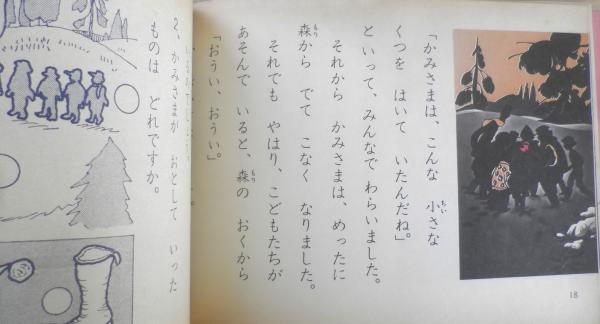 「かみさまは、こんな 小さな
ちい
くつを はいて いたんだね。」
と いって、みんなで わらいました。
それから かみさまは、めったに
森から でて こなく なりました。
もり
それでも やはり、こどもたちが
あそんで いると、森の おくから
もり
「おうい、おうい。」
18
2、かみさまが おとして いった
ものは どれですか。